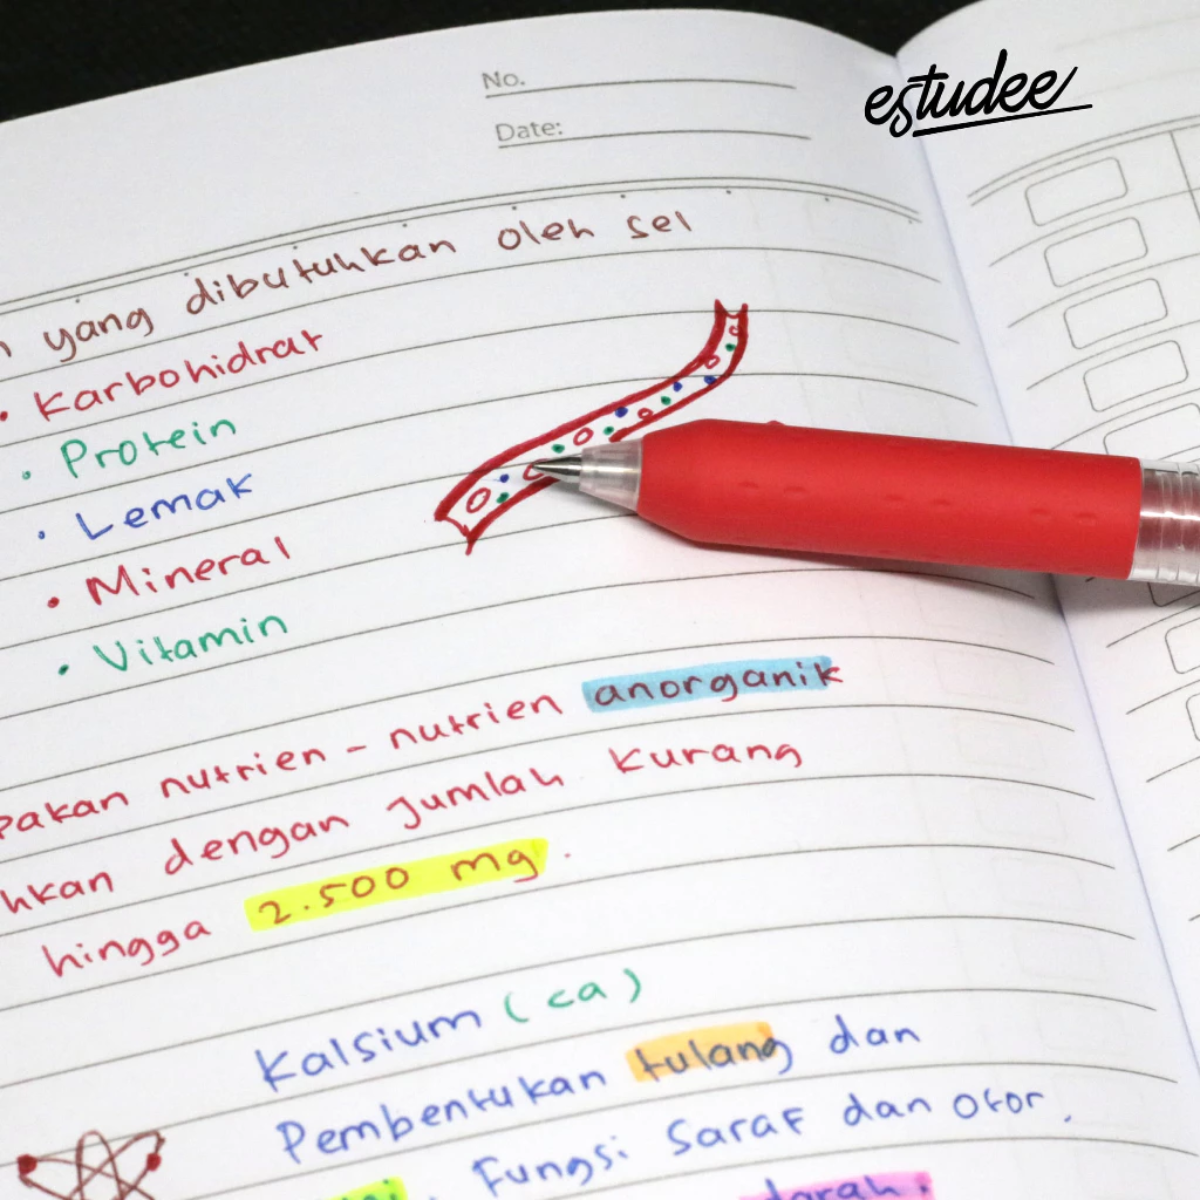 estudee
No.
Date:
yang dibutuhkan oleh sel
• Karbohidrat
• Protein
• Lemak
• Mineral
• Vitamin
pakan nutrien - nutrien anorganik
hkan dengan jumlah kurang
hingga 2.500 mg.
Kalsium (ca)
Pembentukan tulang dan
Fungsi Saraf dan otor.
darah.